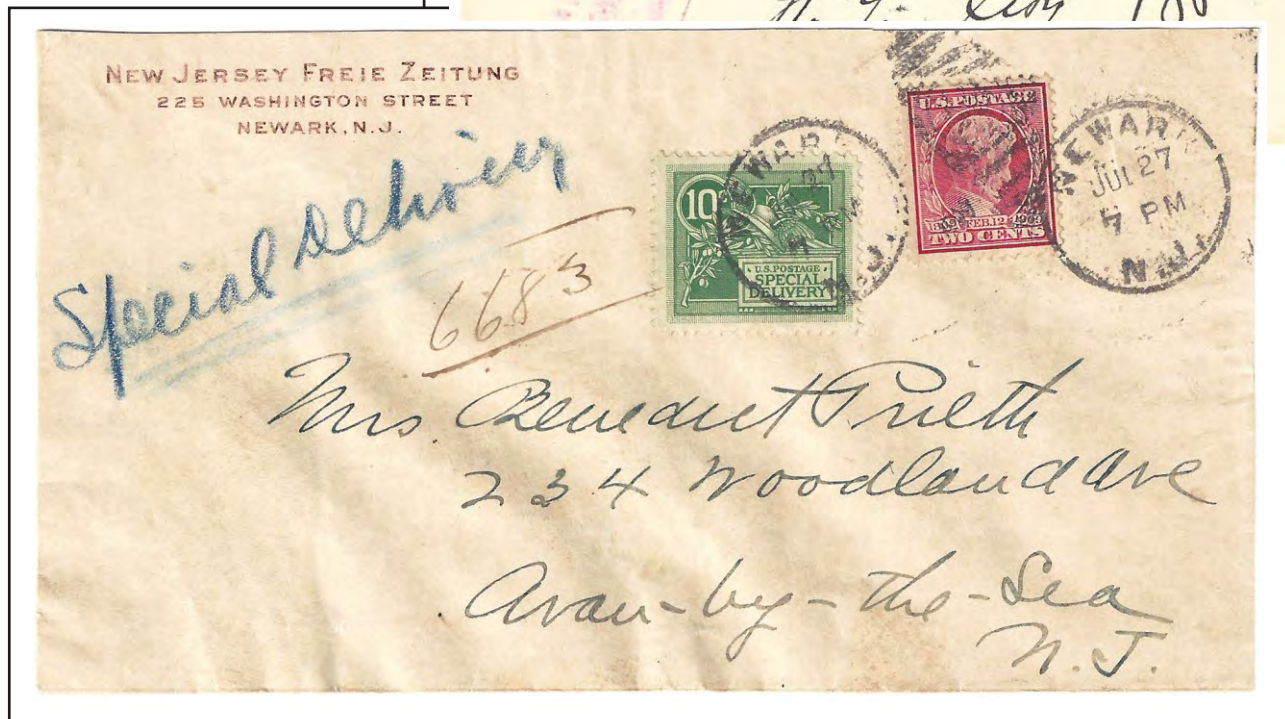 N. Y. City
NEW JERSEY FREIE ZEITUNG
225 WASHINGTON STREET
NEWARK, N.J.
Special Delivery
6683
10
U.S. POSTAGE
SPECIAL
DELIVERY
NEWARK
N.J.
U.S. POSTAGE
FEB. 12 1909
TWO CENTS
NEWARK
JUL 27
7 PM
N.J.
Mrs. Benedict Prieth
234 Woodland Ave
Avon-by-the-Sea
N.J.